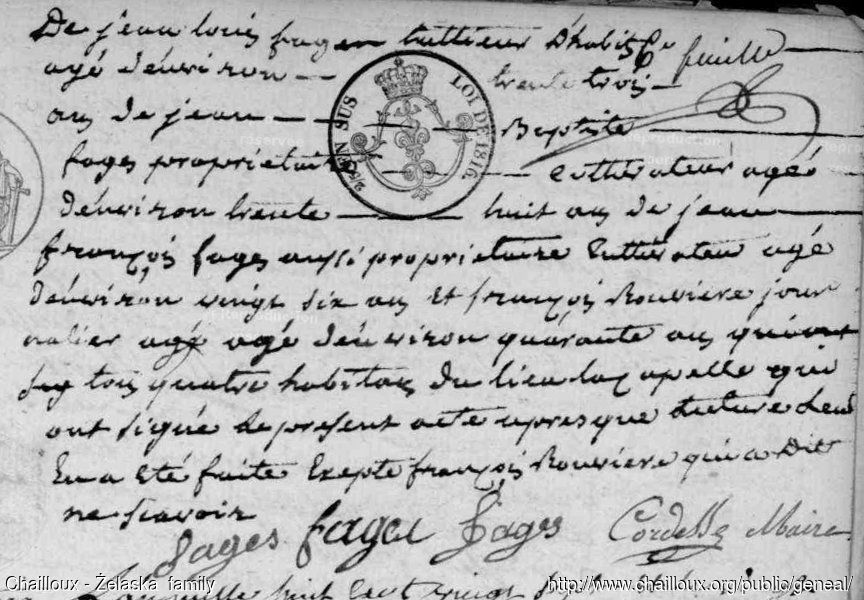 De jean louis fages tuttieur d'habits feuille
agé d'environ trente trois
ans de jean Baptiste
fages proprietaire cultivateur agé
d'environ trente huit ans de jean
françois fages aussi proprietaire cultivateur agé
d'environ vingt six ans et françois Rouviere jour
nalier agé agé d'environ quarante ans
tous quatre habitans du lieu lacapelle qui
ont signé le present acte apres que
En a Eté faite Exepte françois Rouviere qui a dit
ne scavoir
fages fages fages Cordesse Maire
EN SUS
LOI DE 1816.
Chailloux - Żelaska family
http://www.chailloux.org/public/geneal/